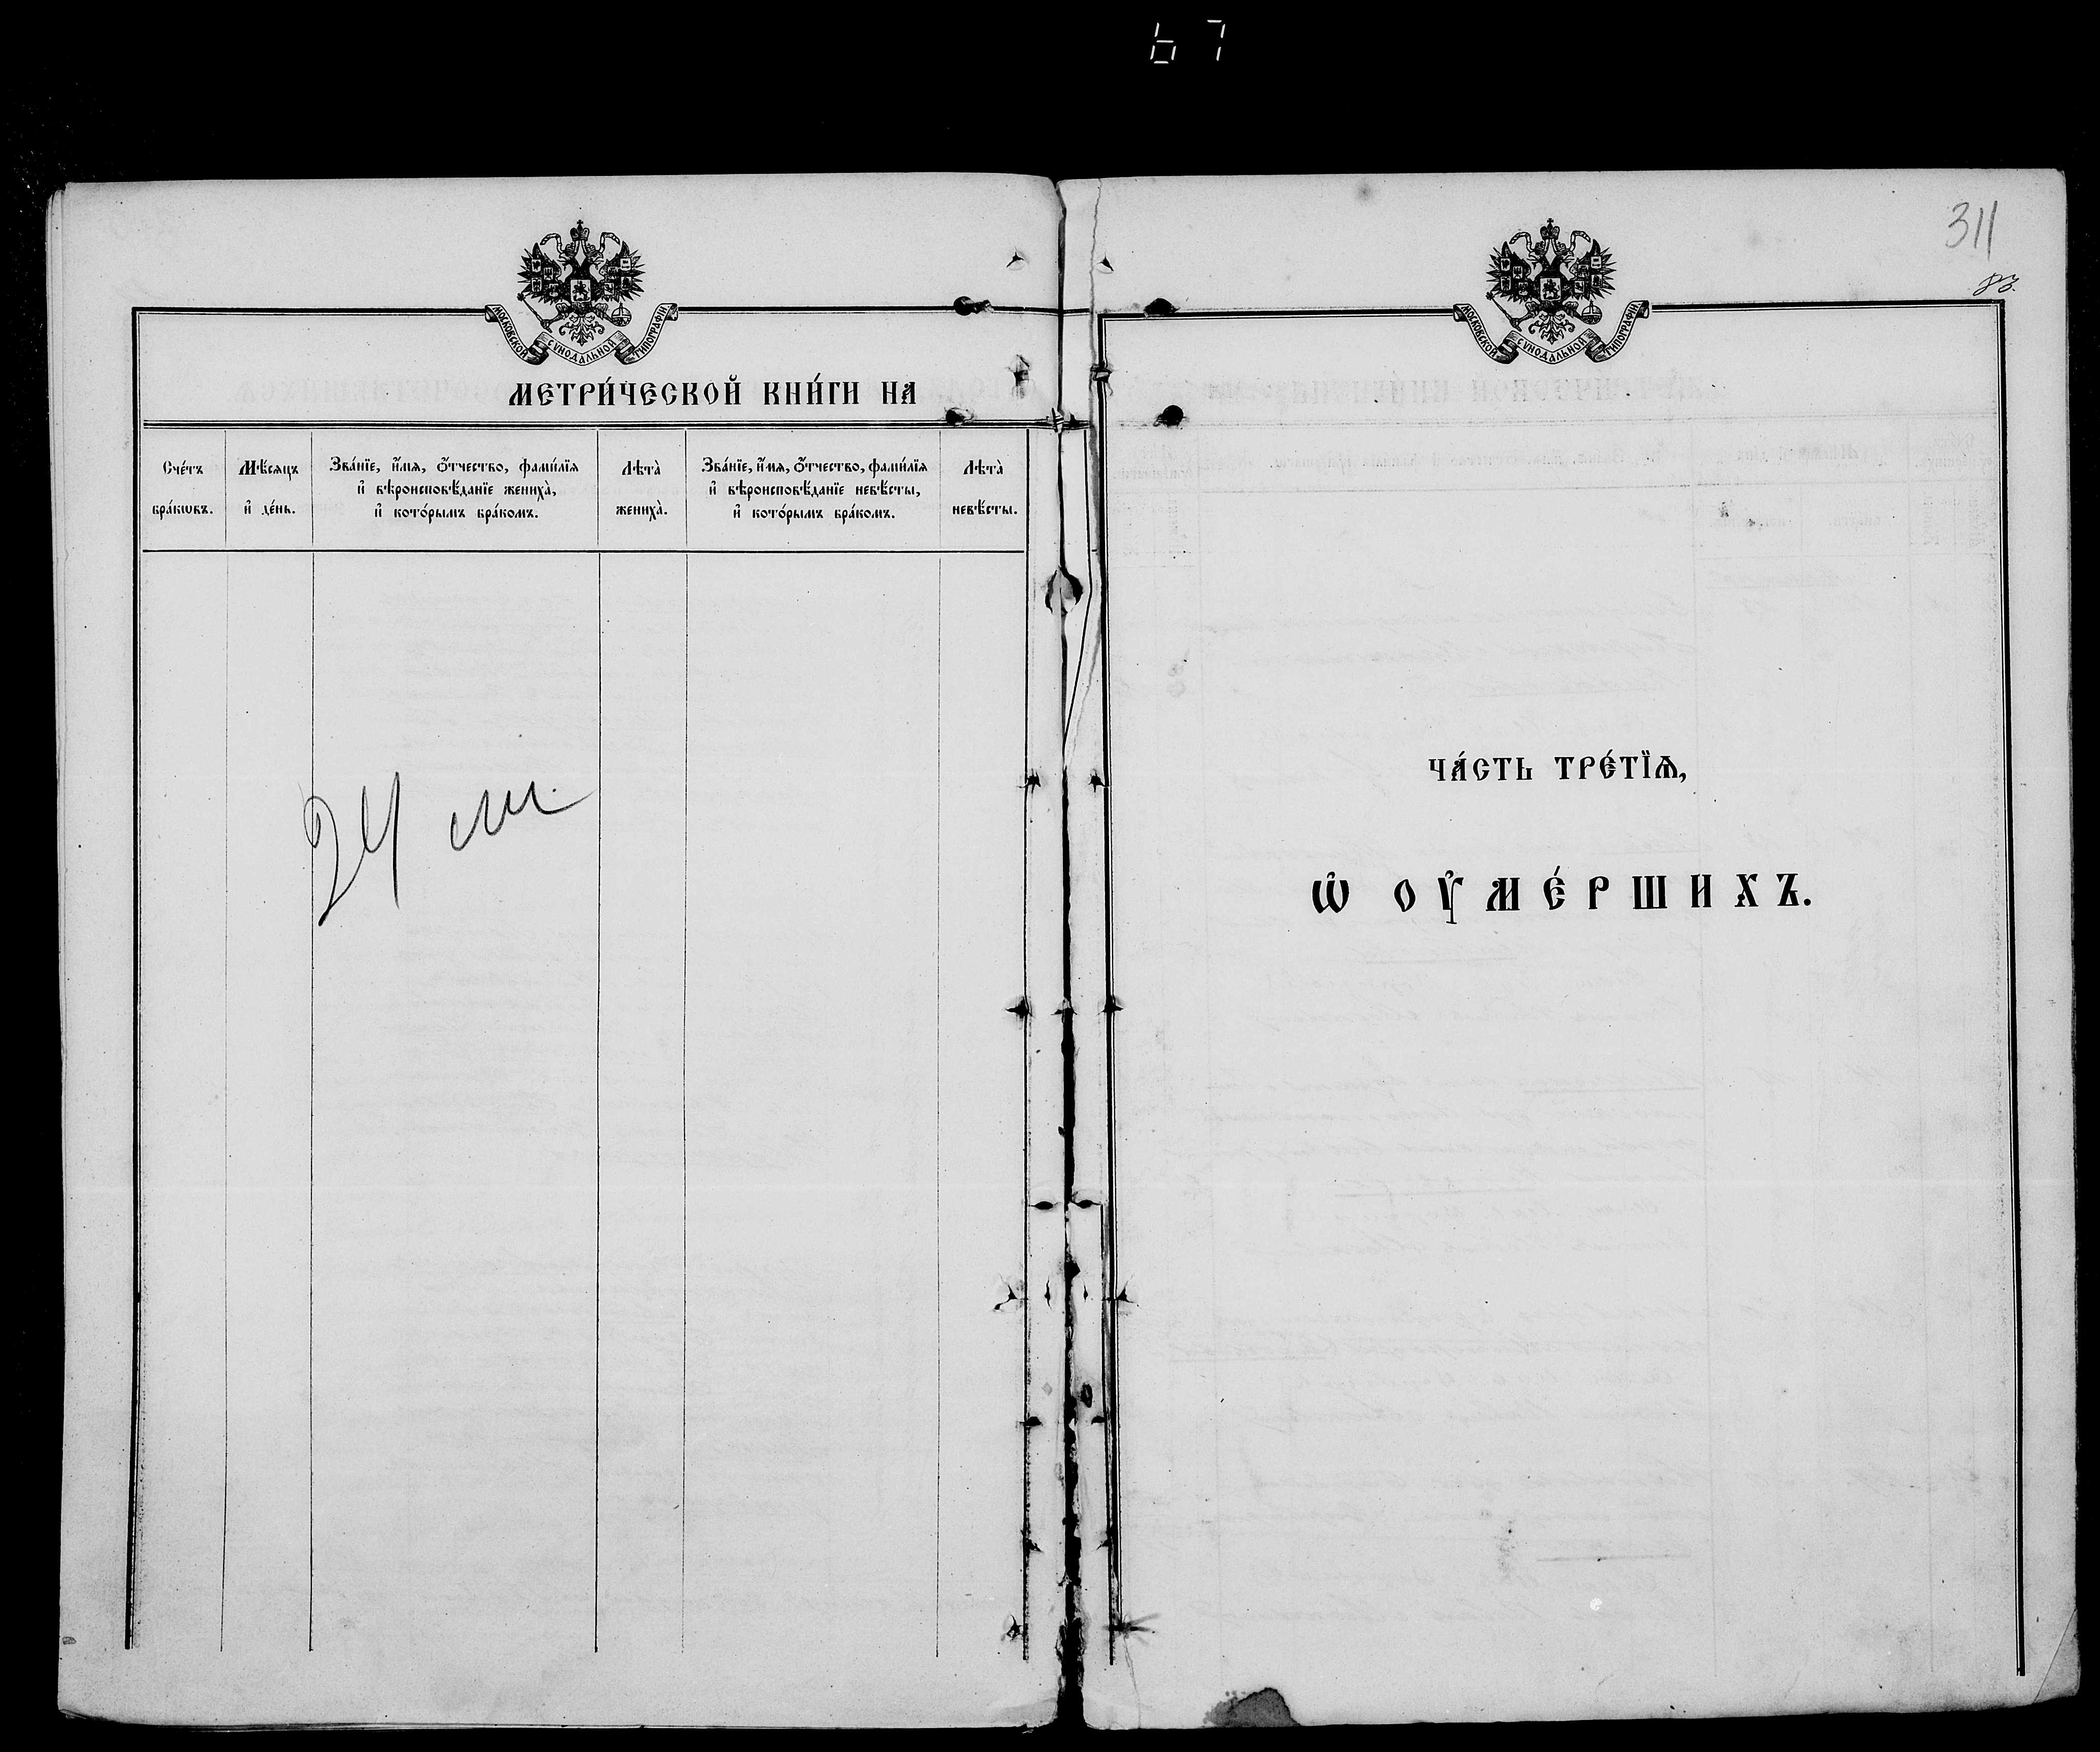 67
МОСКОВСКОЙ СѴНОДАЛЬНОЙ ТИПОГРАФІИ
МЕТРИ́ЧЕСКОЙ КНИ́ГИ НА
Сче́тъ бра́кѡвъ.
Мѣ́сяцъ и҆ де́нь.
Зва́нїе, и҆́мѧ, ѻ҆́тчество, фами́лїѧ
и҆ вѣроисповѣ́данїе жениха̀,
и҆ кото́рымъ бра́комъ.
Лѣта̀ жениха̀.
Зва́нїе, и҆́мѧ, ѻ҆́тчество, фами́лїѧ
и҆ вѣроисповѣ́данїе невѣ́сты,
и҆ кото́рымъ бра́комъ.
Лѣта̀ невѣ́сты.
24
311
83.
МОСКОВСКОЙ СѴНОДАЛЬНОЙ ТИПОГРАФІИ
ЧА́СТЬ ТРЕ́ТЇѦ,
Ѡ҆ ОУ҆МЕ́РШИХЪ.